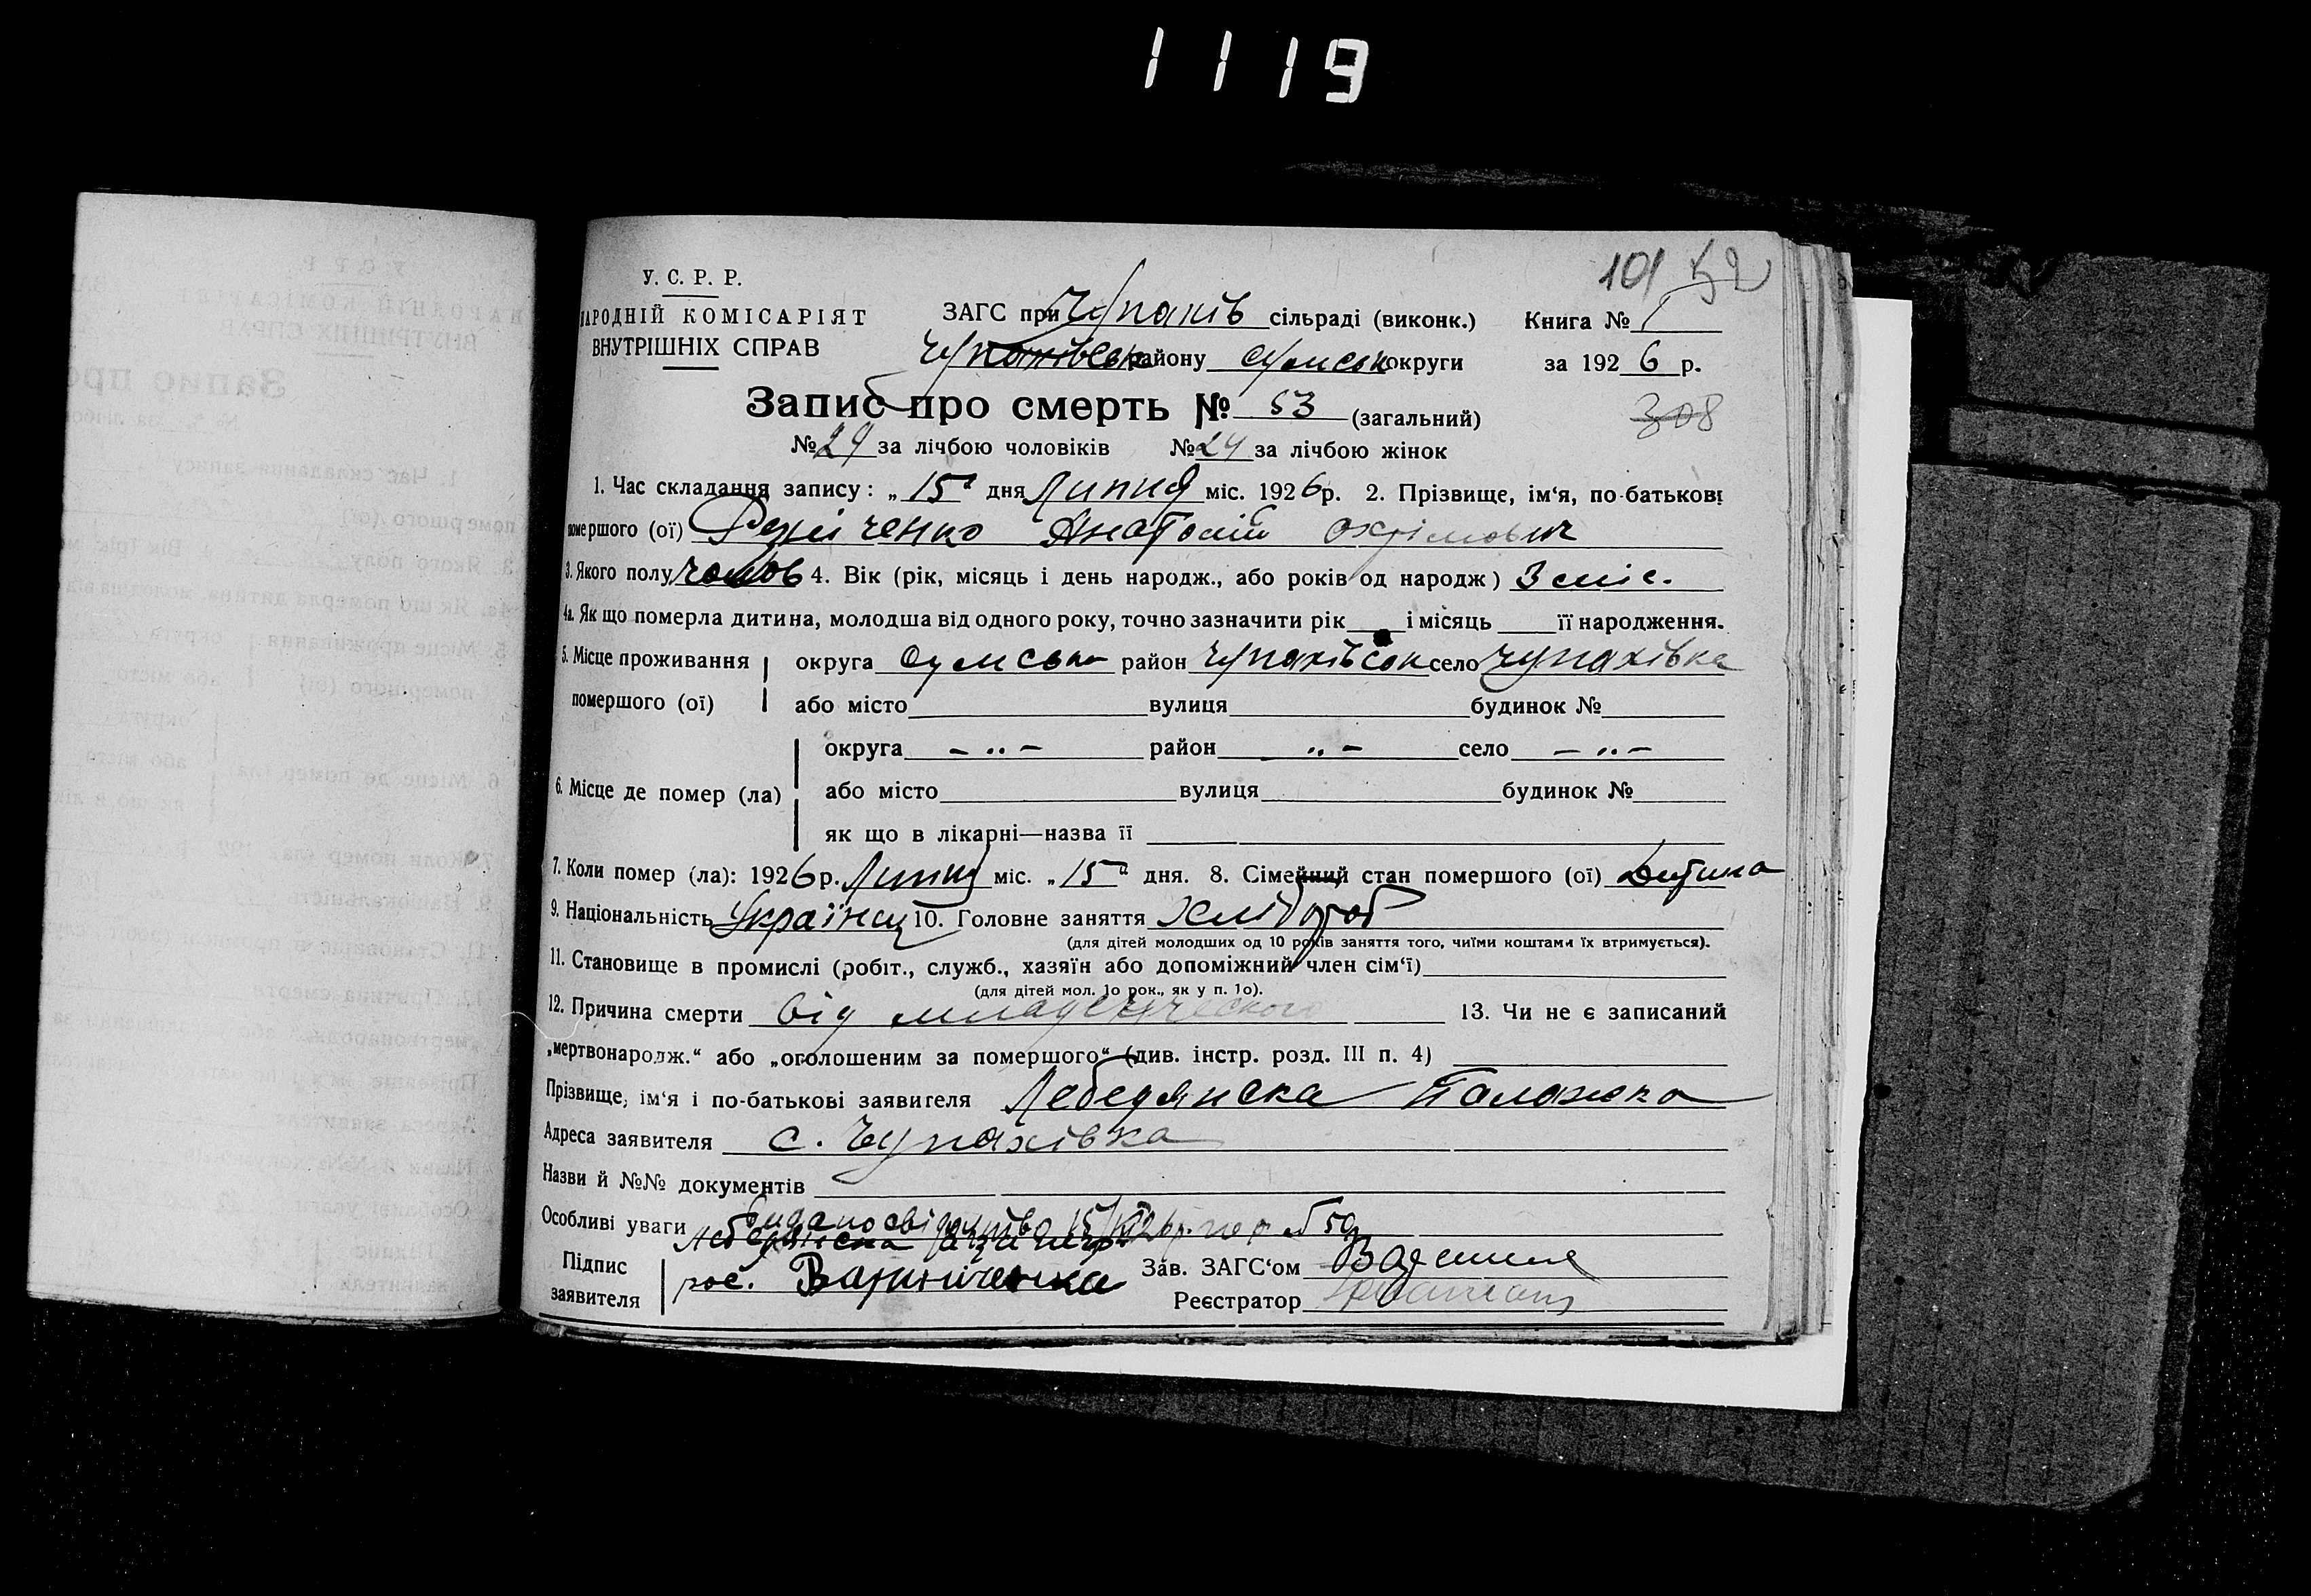 1119
101 52
У. С. Р. Р.
НАРОДНІЙ КОМІСАРІЯТ
ВНУТРІШНІХ СПРАВ
ЗАГС при Чупахів сільраді (виконк.) Книга № 1
Чупахівськ району Сумськ округи за 1926 р.
308
Запис про смерть № 53 (загальний)
№ 29 за лічбою чоловіків № 24 за лічбою жінок
1. Час складання запису: „ 15 дня Липня міс. 1926 р. 2. Прізвище, ім‘я, по-батькові
помершого (ої) Анатолій Охрімович
3. Якого полу чолов 4. Вік (рік, місяць і день народж., або років од народж) 3 міс.
4а. Як що померла дитина, молодша від одного року, точно зазначити рік і місяць її народження.
5. Місце проживання помершого (ої) округа Сумськ район Чупахівськ село Чупахівка
або місто вулиця будинок №
6. Місце де помер (ла) округа — „ — район „ — село — „ —
або місто вулиця будинок №
як що в лікарні—назва її
7. Коли помер (ла): 1926 р. Липня міс. „ 15 дня. 8. Сімейний стан помершого (ої) Дитина
9. Національність Українец 10. Головне заняття Хлібороб
(для дітей молодших од 10 років заняття того, чиїми коштами їх втримується).
11. Становище в промислі (робіт., служб., хазяїн або допоміжний член сім‘ї)
(для дітей мол. 10 рок., як у п. 10).
12. Причина смерти Від младенческого 13. Чи не є записаний
„мертвонародж.“ або „оголошеним за помершого“ (див. інстр. розд. III п. 4)
Прізвище, ім‘я і по-батькові заявителя Лебединска Палажка
Адреса заявителя с. Чупахівка
Назви й №№ документів
Особливі уваги Видано свідоцтво 15/VII 26 р.
Підпис заявителя Лебединска
рос.
Зав. ЗАГС‘ом
Реєстратор